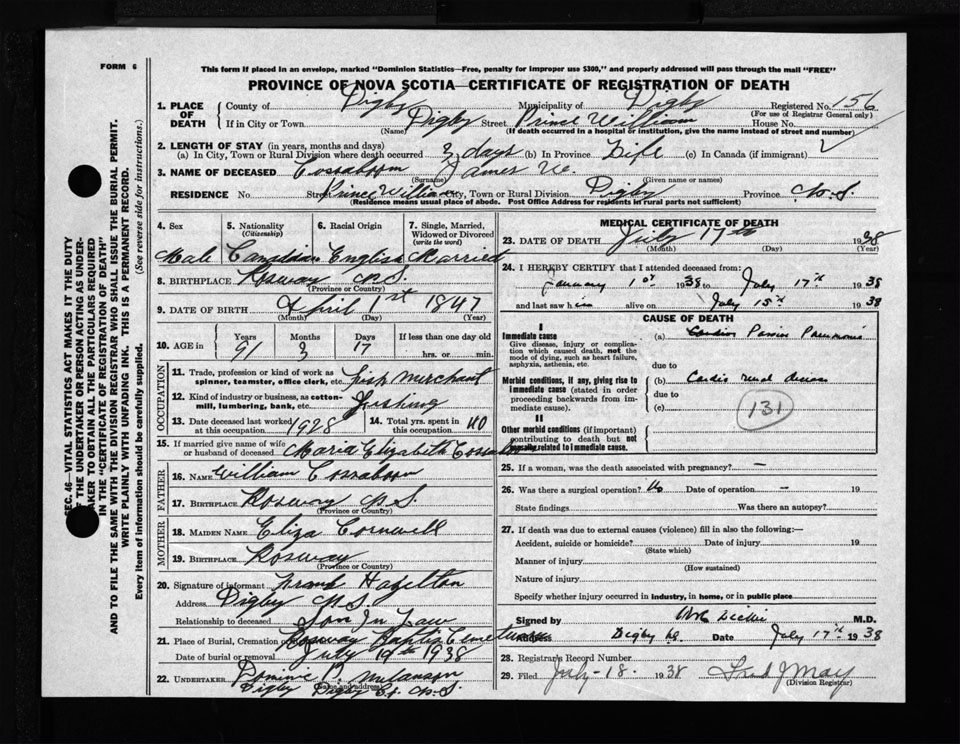 FORM 6
This form if placed in an envelope, marked "Dominion Statistics—Free, penalty for improper use $300," and properly addressed will pass through the mail "FREE"
PROVINCE OF NOVA SCOTIA—CERTIFICATE OF REGISTRATION OF DEATH
1. PLACE OF DEATH County of Digby Municipality of Digby Registered No. 156
(For use of Registrar General only)
If in City or Town Digby Street Prince William House No.
(Name) (If death occurred in a hospital or institution, give the name instead of street and number)
2. LENGTH OF STAY (in years, months and days)
(a) In City, Town or Rural Division where death occurred days (b) In Province Life (c) In Canada (if immigrant)
3. NAME OF DECEASED Cossaboom James W.
(Surname) (Given name or names)
RESIDENCE No. Street Prince William City, Town or Rural Division Digby Province N.S
(Residence means usual place of abode. Post Office Address for residents in rural parts not sufficient)
4. Sex 5. Nationality (Citizenship) 6. Racial Origin 7. Single, Married, Widowed or Divorced (write the word)
Male Canadian English Married
8. BIRTHPLACE Rosway N.S
(Province or Country)
9. DATE OF BIRTH April 1st 1847
(Month) (Day) (Year)
10. AGE in Years Months Days If less than one day old
91 3 17 hrs. or min.
OCCUPATION
11. Trade, profession or kind of work as spinner, teamster, office clerk, etc. Fish Merchant
12. Kind of industry or business, as cotton-mill, lumbering, bank, etc. Fishing
13. Date deceased last worked at this occupation 1928 14. Total yrs. spent in this occupation 40
15. If married give name of wife or husband of deceased Maria Elizabeth Cossaboom
FATHER
16. NAME William Cossaboom
17. BIRTHPLACE Rosway N.S
(Province or Country)
MOTHER
18. MAIDEN NAME Eliza Cornwell
19. BIRTHPLACE Rosway
(Province or Country)
20. Signature of informant Frank Hazelton
Address Digby N.S.
Relationship to deceased Son In Law
21. Place of Burial, Cremation Rosway Baptis Cemeture
Date of burial or removal July 19th 1938
22. UNDERTAKER Dominic P. Melanson
(Name and address)
Digby Digby Co. N.S.
MEDICAL CERTIFICATE OF DEATH
23. DATE OF DEATH July 17th 1938
(Month) (Day)
24. I HEREBY CERTIFY that I attended deceased from:
January 1st 1938 to July 17th 1938
and last saw him alive on July 15th 1938
CAUSE OF DEATH
I
Immediate cause
Give disease, injury or complication which caused death, not the mode of dying, such as heart failure, asphyxia, asthenia, etc.
(a) Pneumonia
due to
Morbid conditions, if any, giving rise to immediate cause (stated in order proceeding backwards from immediate cause).
(b) Cardio renal disease
due to
(c)
131
II
Other morbid conditions (if important) contributing to death but not causally related to immediate cause.
25. If a woman, was the death associated with pregnancy? —
26. Was there a surgical operation? No Date of operation — 19
State findings Was there an autopsy?
27. If death was due to external causes (violence) fill in also the following:—
Accident, suicide or homicide? Date of injury 19
(State which)
Manner of injury
(How sustained)
Nature of injury
Specify whether injury occurred in industry, in home, or in public place
Signed by M.D.
Address Digby N.S. Date July 17th 1938
28. Registrar's Record Number
29. Filed July-18- 1938 Fred J May
(Division Registrar)
SEC. 46—VITAL STATISTICS ACT MAKES IT THE DUTY OF THE UNDERTAKER OR PERSON ACTING AS UNDERTAKER TO OBTAIN ALL THE PARTICULARS REQUIRED IN THE "CERTIFICATE OF REGISTRATION OF DEATH"
AND TO FILE THE SAME WITH THE DIVISION REGISTRAR WHO SHALL ISSUE THE BURIAL PERMIT.
WRITE PLAINLY WITH UNFADING INK. THIS IS A PERMANENT RECORD.
Every item of information should be carefully supplied. (See reverse side for instructions.)